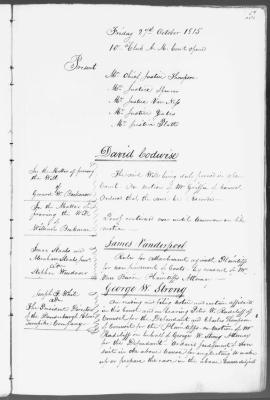 Friday 27th October 1815
10 Clock A. M. Court opened
Present
Mr Chief Justice Thompson
Mr Justice Spencer
Mr Justice Van Ness
Mr Justice Yates
Mr Justice Platt
David Codwise
In the Matter of proving
the Will
of
Gerard W. Beekman
The said Will being duly proved in open
Court On motion of Mr Griffin of Counsel
Ordered that the same be recorded
In the Matter of
proving the Will
of
William Beekman
Proof continued over until tomorrow on like
motion
James Vanderpoel
Isaac Steele and
Abraham Steele
vs
Stephen
Rule for attachment against Plaintiffs
for non payment of Costs by consent of Mr
Van Buren Plaintiffs Attorney
George W. Strong
Joseph B. White
ads
The President Directors
of the
Turnpike Company
On reading and filing notice and motion affidavit
in this cause and on hearing Peter W. Radcliff of
Counsel for the Defendants and Charles
of Counsel for the Plaintiffs on motion of Mr
Radcliff on behalf of George W. Strong Attorney
for the Defendants Ordered judgment of non
suit in the above cause for neglecting to make
up or prepare the case in the above